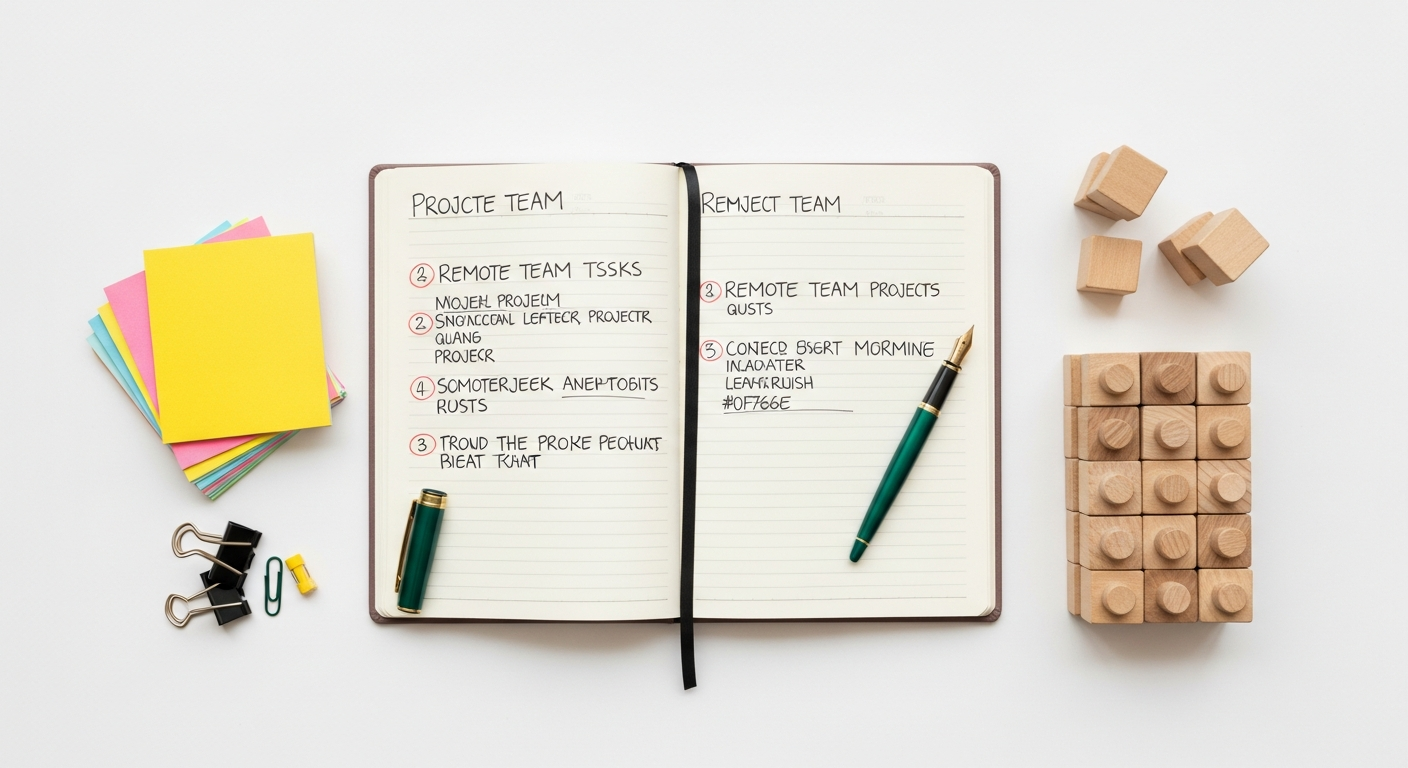 PROJCTE TEAM
2 REMOTE TEAM TSSKS
MOJEH PROJELM
2. LEFTECR PROJECTR
QUANG
PROJECR
4 SOMOTERJEEK ANEPTOBITS
RUSTS
3 TROUD THE PROKE
BIEAT
REMJECT TEAM
REMOTE TEAM PROJECTS
QUSTS
CONECD BSERT MORMINE
INLADATER
#0F766E